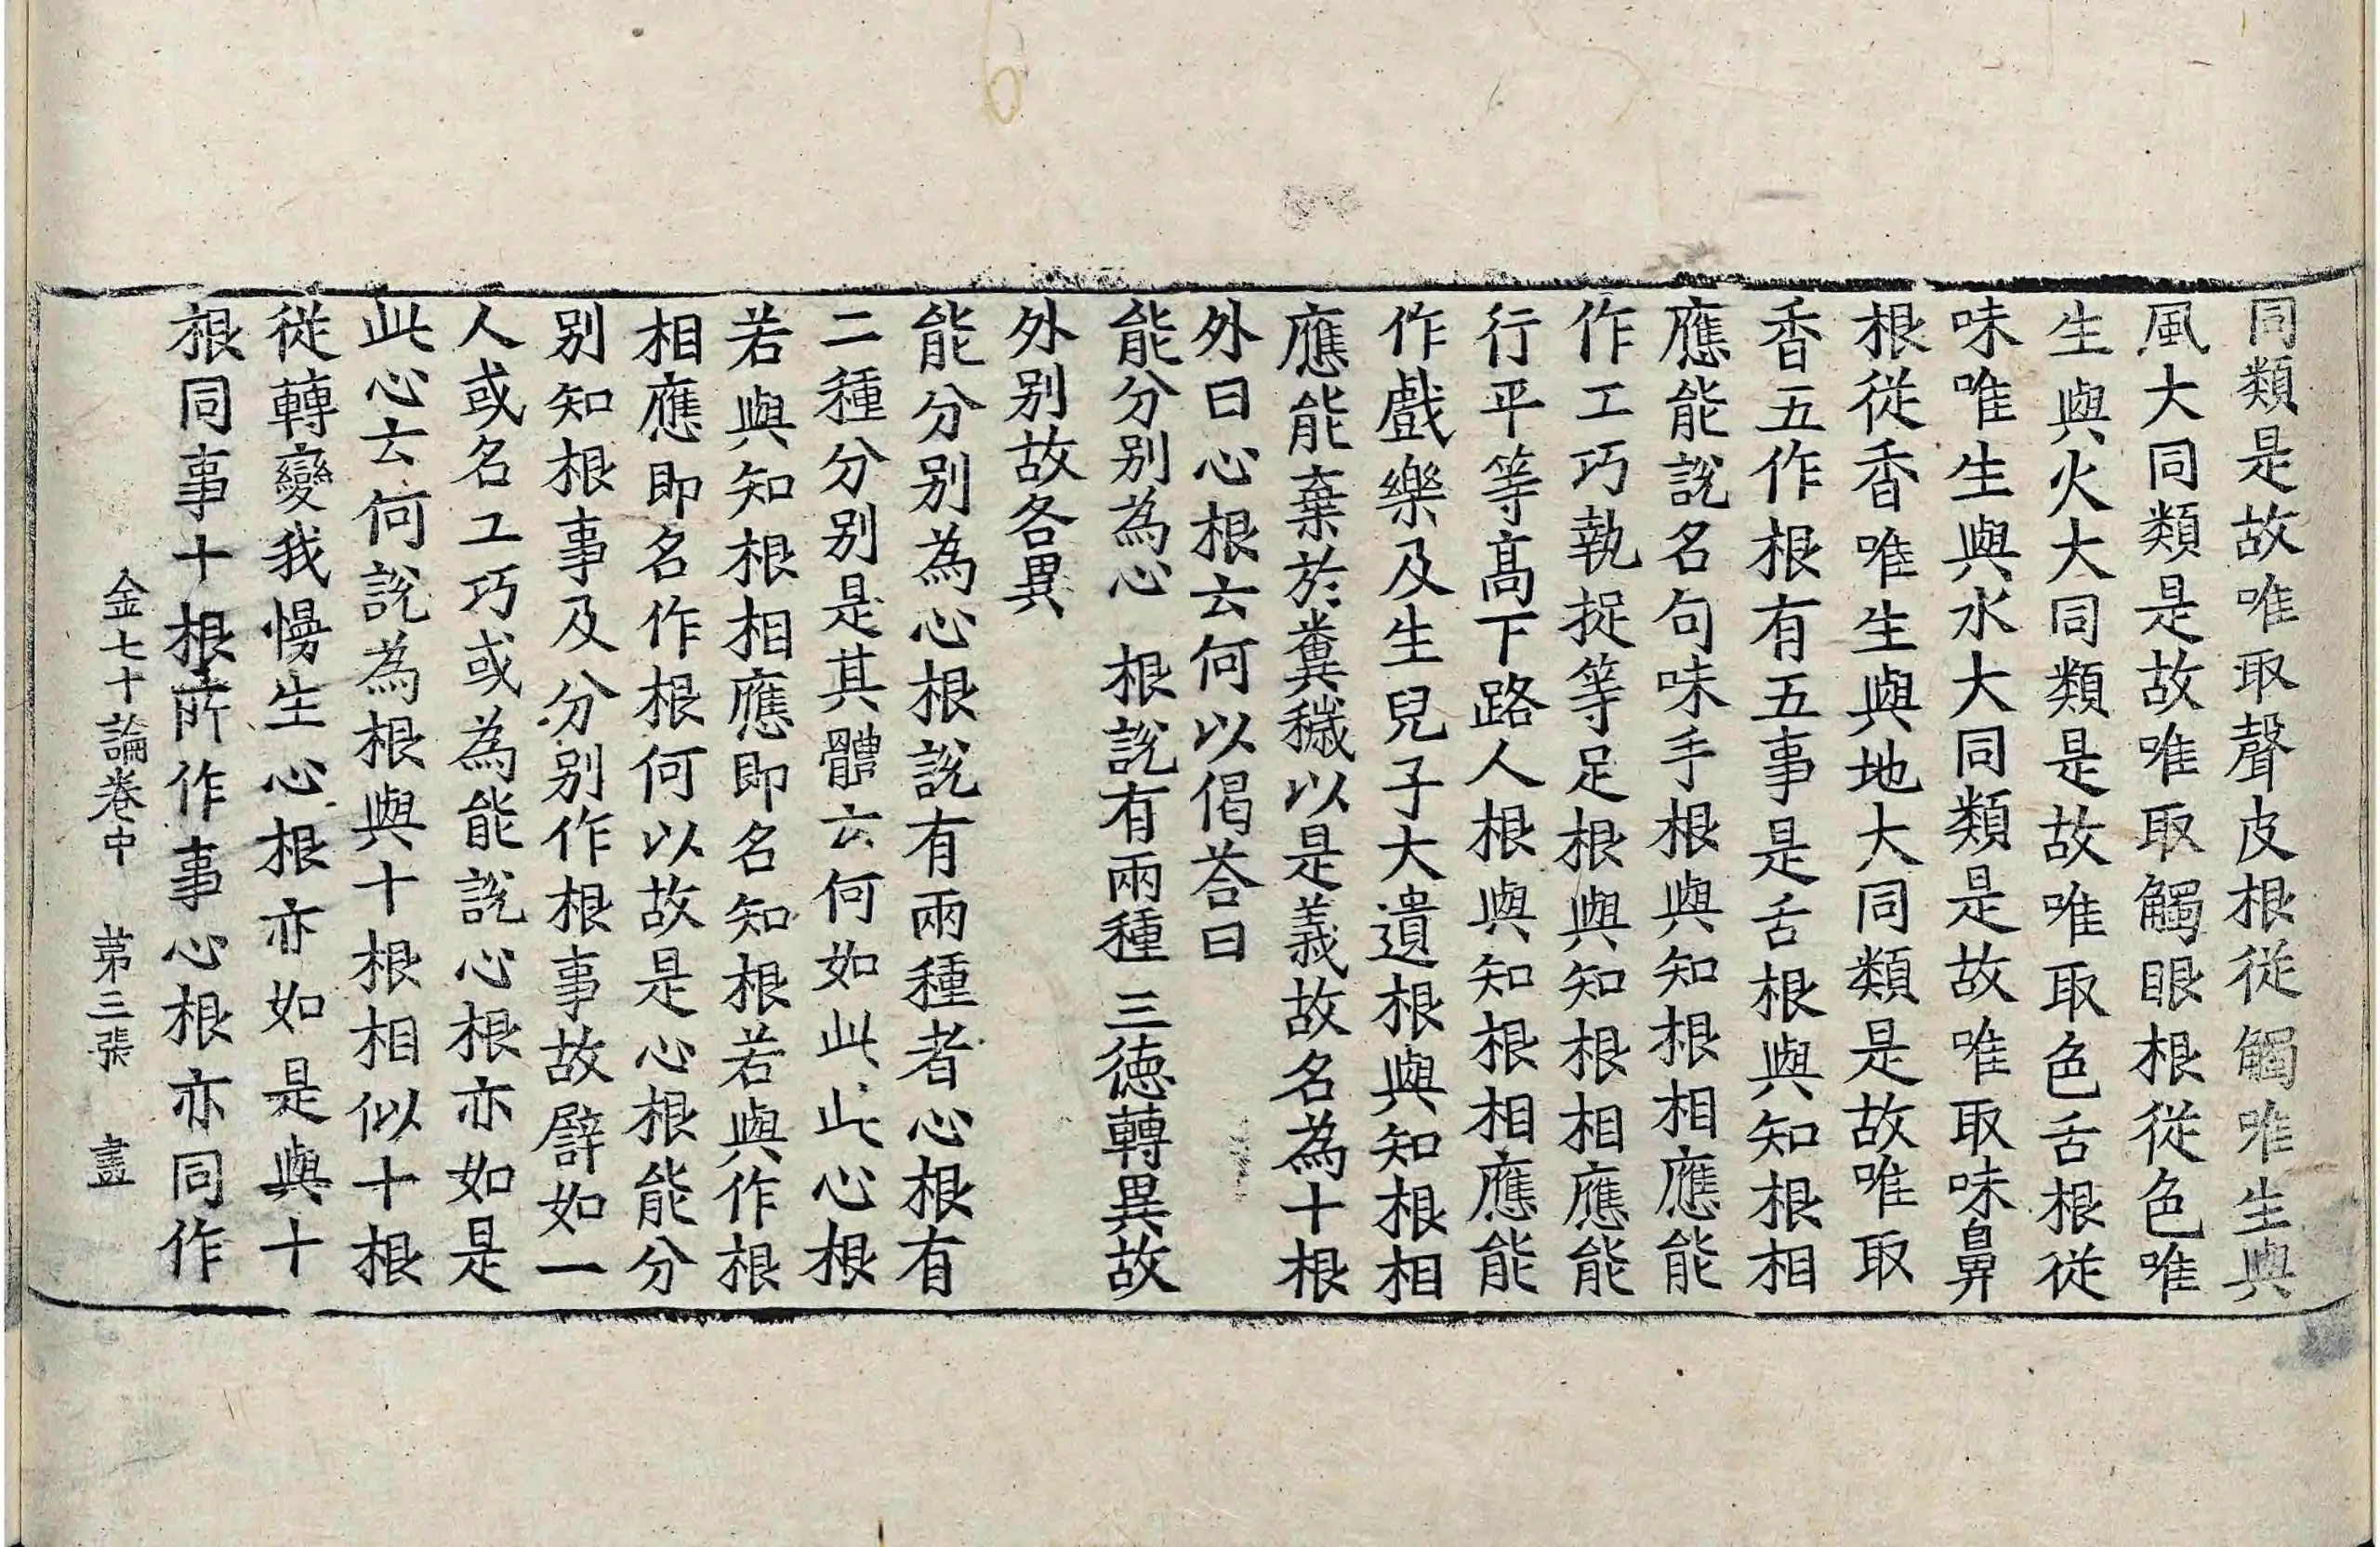 同類是故唯取聲皮根從觸唯生與
風大同類是故唯取觸眼根從色唯
生與火大同類是故唯取色舌根從
味唯生與水大同類是故唯取味鼻
根從香唯生與地大同類是故唯取
香五作根有五事是舌根與知根相
應能說名句味手根與知根相應能
作工巧執捉等足根與知根相應能
行平等髙下路人根與知根相應能
作戲樂及生兒子大遺根與知根相
應能棄於糞穢以是義故名為十根
外曰心根云何以偈荅曰
能分別為心　根說有兩種　三徳轉異故
外別故各異
能分別為心根說有兩種者心根有
二種分別是其體云何如此此心根
若與知根相應即名知根若與作根
相應即名作根何以故是心根能分
別知根事及分別作根事故譬如一
人或名工巧或為能說心根亦如是
此心云何說為根與十根相似十根
從轉變我慢生心根亦如是與十
根同事十根所作事心根亦同作
金七十論卷中　第三張　盡